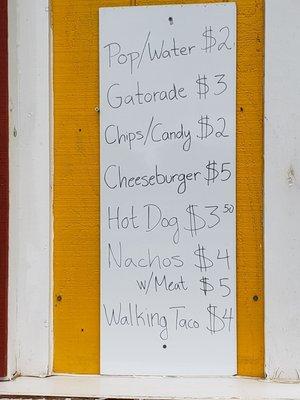 Pop/Water $2
Gatorade $3
Chips/Candy $2
Cheeseburger $5
Hot Dog $3.50
Nachos $4
w/Meat $5
Walking Taco $4